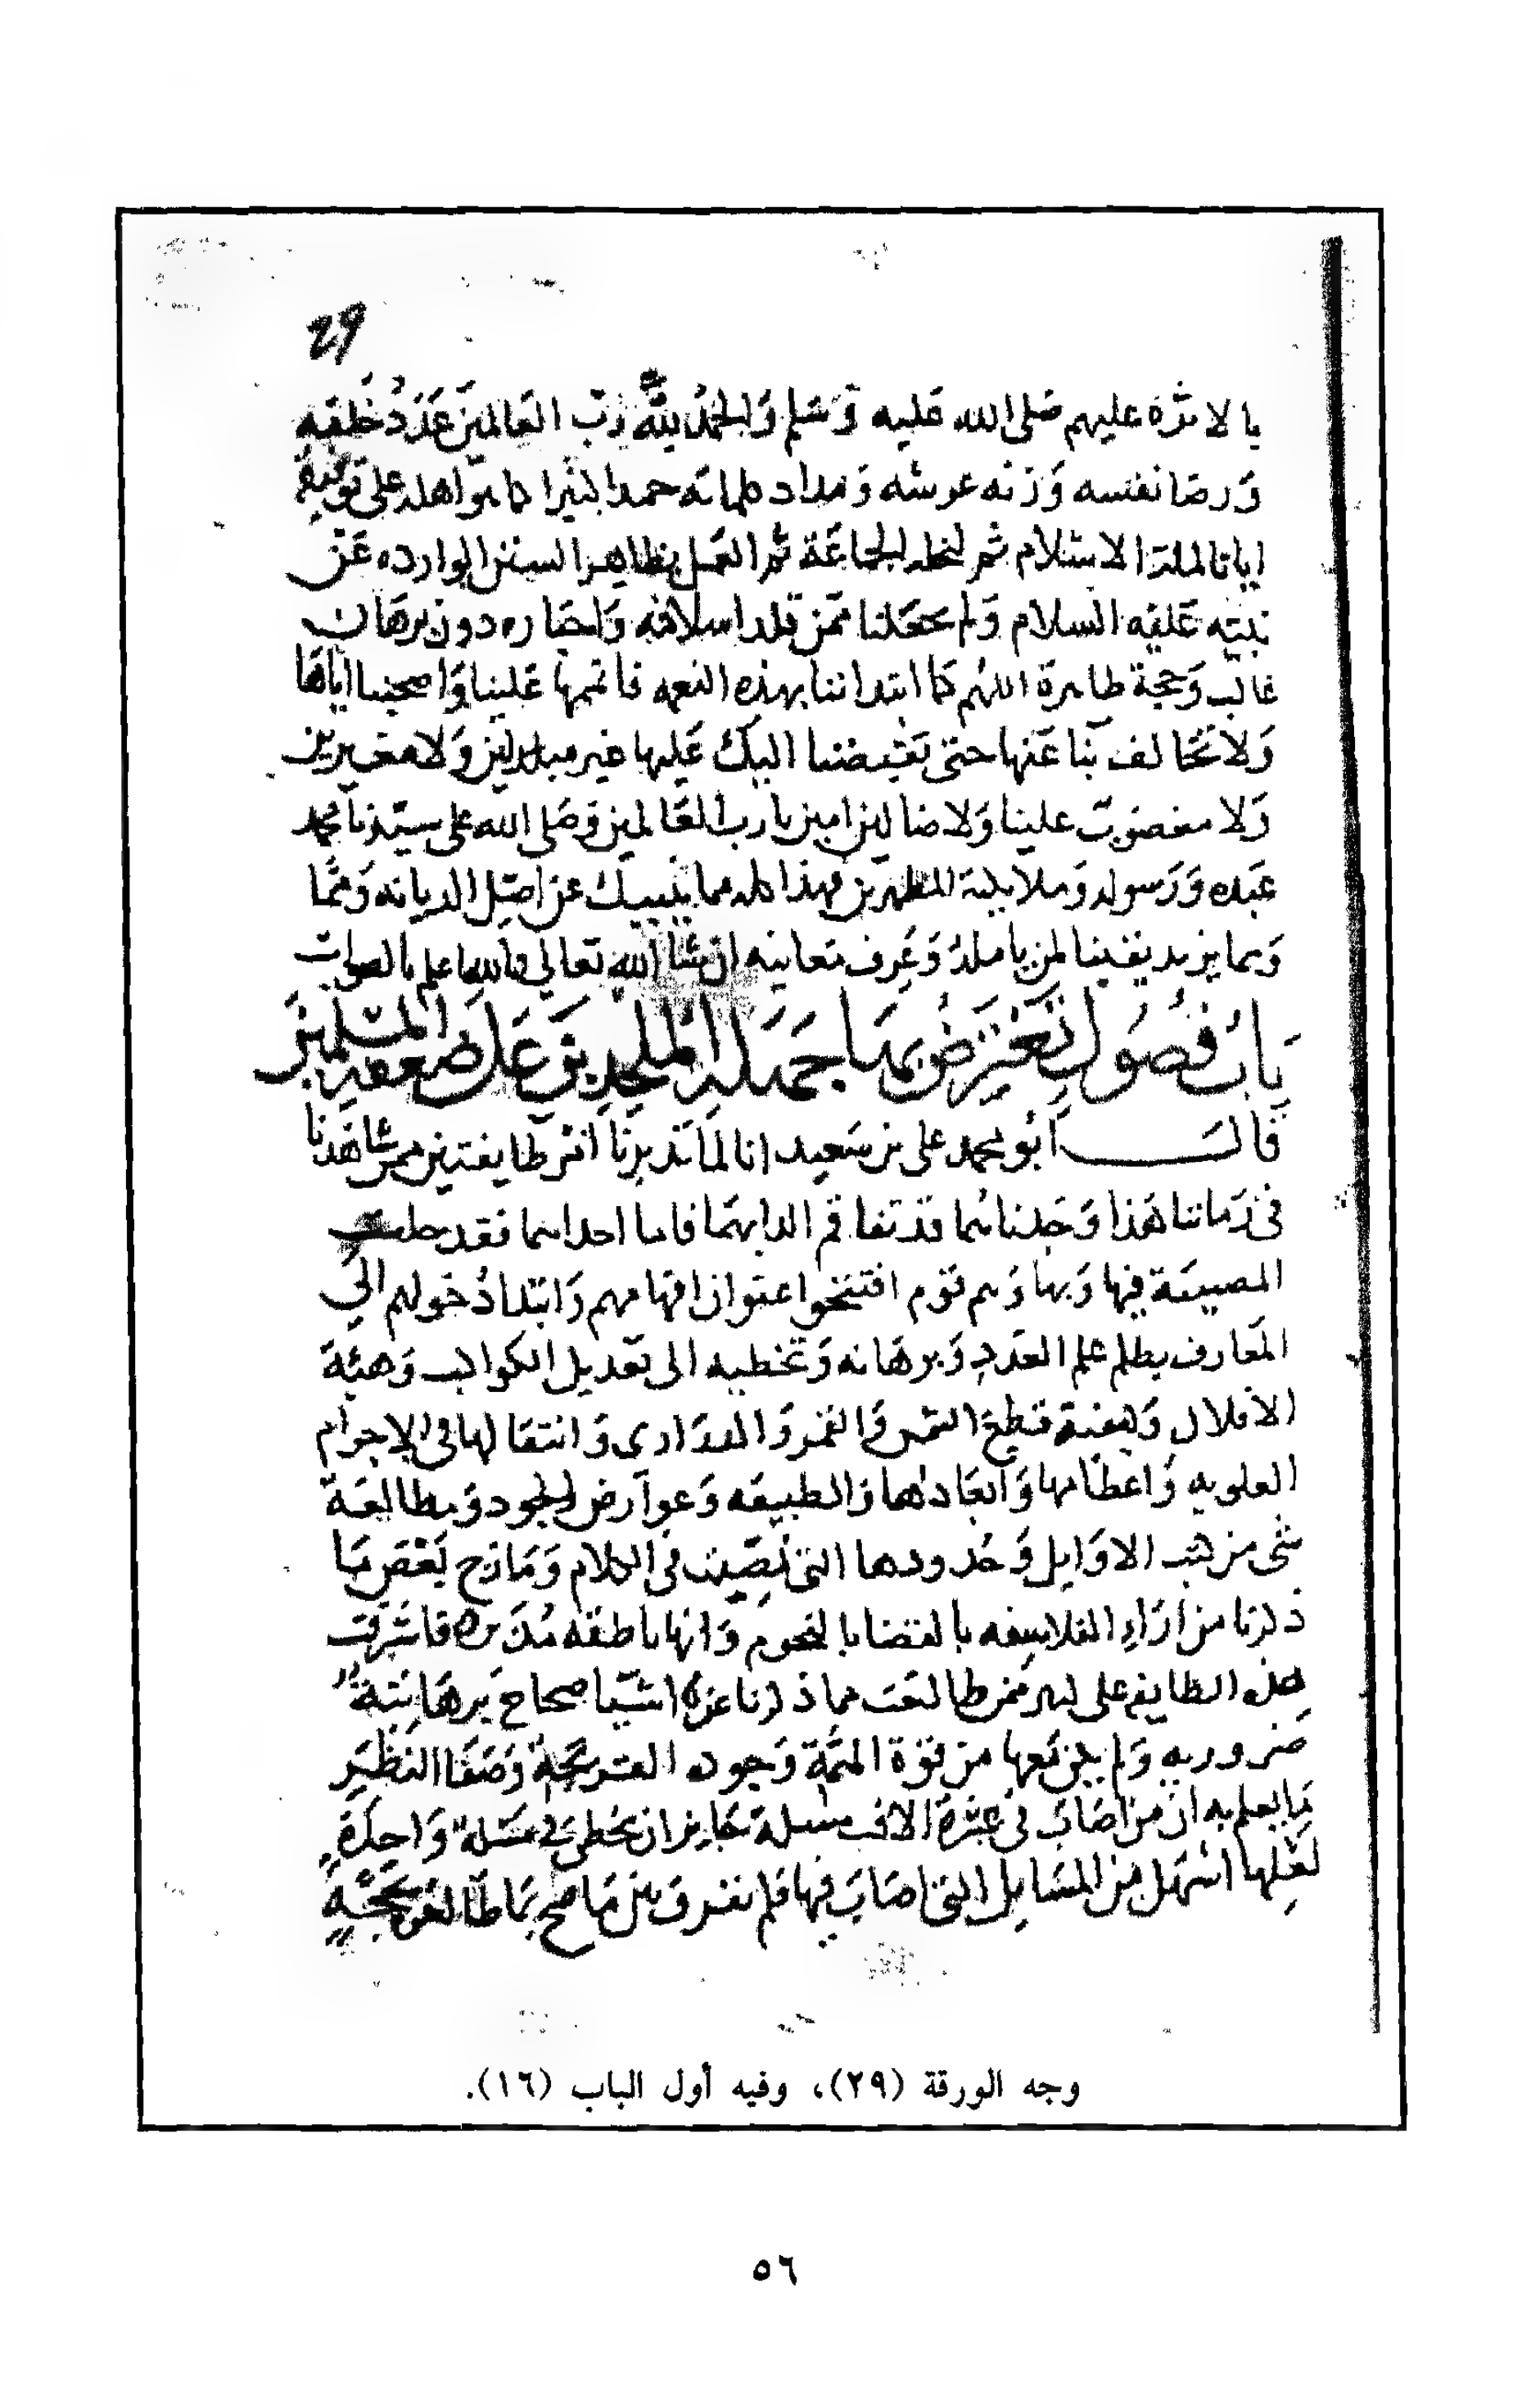 29
بالاثره عليهم صلى الله عليه وسلم والحمد لله رب العالمين عدد خلقه
ورضا نفسه وزنه عرشه ومداد كلماته حمدا كثيرا كما هو اهله على توفيقه
ايانا لملة الاسلام ثم لنحله الجماعة ثم العمل بظاهر السنن الوارده عن
نبيه عليه السلام ولم يجعلنا ممن قلد اسلافه واحباره دون برهان
غالب وحجة ظاهرة اللهم كما ابتداتنا بهذه النعمه فاتمها علينا واصحبنا اياها
ولا تخالف بنا عنها حتى تقبضنا اليك عليها غير مبدلين ولا مغيرين
ولا مغضوب علينا ولا ضالين امين يا رب العالمين وصلى الله على سيدنا محمد
عبده ورسوله وملايكته المطهرين فهذا كله مما ينبيك عن اصل الديانه ومما
وبما يزيد يقينا لمن يامله وعرف معانيه ان شا الله تعالى والله اعلم بالصواب
باب فصول نعترض بها جهلة الملحدين على ضعفة المسلمين
قال ابو محمد علي بن سعيد انا لما تدبرنا امر طايفتين ممن شاهدنا
في زماننا هذا وجدناهما قد تفاقم الدا بهما فاما احداهما فقد جلت
المصيبة فيها وبها وهم قوم افتتحوا عنوان افهامهم وابتدا دخولهم الى
المعارف بطلب علم العدد وبرهانه وتخطيه الى تعديل الكواكب وهيئة
الافلاك وكيفية قطع الشمس والقمر والدراري وانتقالها في الاجرام
العلويه واعظامها وابعادها والطبيعه وعوارض الجو ومطالعة
شي من كتب الاوايل وحدودها التي نصبت في الكلام ومازج بعض ما
ذكرنا من اراء الفلاسفه بالقضا بالنجوم وانها ناطقة مدبره فاشرفت
هذه الطايفه على كثير ممن طالعت مما ذكرنا على اشيا صحاح برهانية
ضروريه ولم يكن معها من قوة المنة وجوده القريحة وصفا النظر
ما يعلم به ان من اصاب في عشرة الاف مسلة جايز ان يخطي في مسلة واحدة
لعلها اسهل من المسايل التي اصاب فيها فلم تفرق بين ما صح مما طالعوه بحجة
وجه الورقة (٢٩)، وفيه أول الباب (١٦).
٥٦